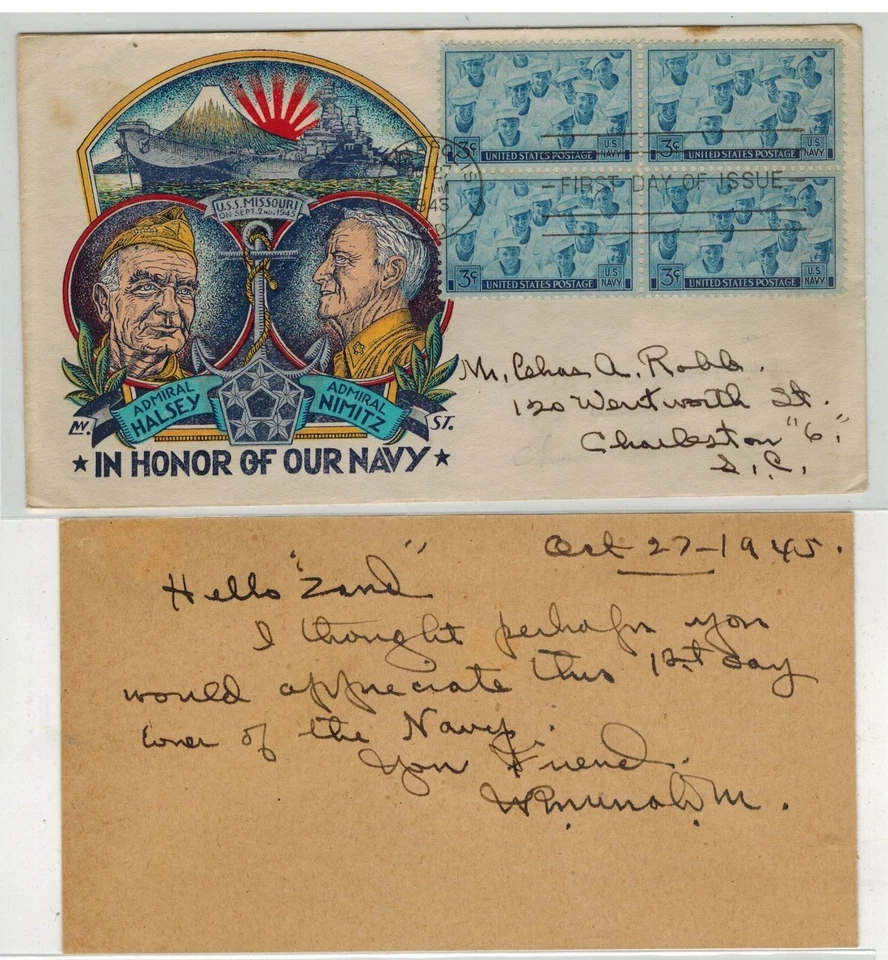 U.S.S. MISSOURI
ON SEPT. 2ND. 1945
ADMIRAL
HALSEY
ADMIRAL
NIMITZ
ST.
★ IN HONOR OF OUR NAVY ★
3¢ UNITED STATES POSTAGE U.S. NAVY
3¢ UNITED STATES POSTAGE U.S. NAVY
3¢ UNITED STATES POSTAGE U.S. NAVY
3¢ UNITED STATES POSTAGE U.S. NAVY
1945
FIRST DAY OF ISSUE
Mr. Chas A. Robb.
120 Wentworth St.
Charleston "6".
S.C.
Oct 27-1945.
Hello "Zand"
I thought perhaps you
would appreciate this 1st day
Cover of the Navy.
Your Friend.